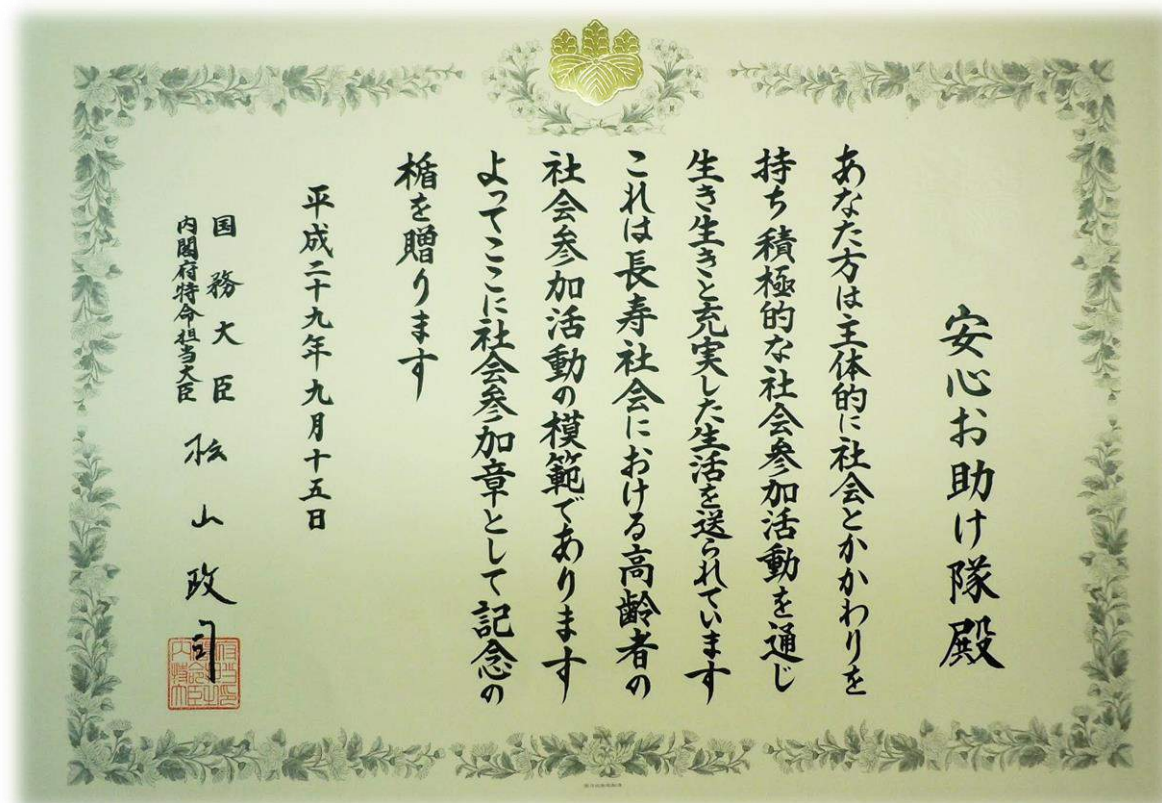 安心お助け隊殿
あなた方は主体的に社会とかかわりを
持ち積極的な社会参加活動を通じ
生き生きと充実した生活を送られています
これは長寿社会における高齢者の
社会参加活動の模範であります
よってここに社会参加章として記念の
楯を贈ります
平成二十九年九月十五日
国務大臣
内閣府特命担当大臣
松山政司